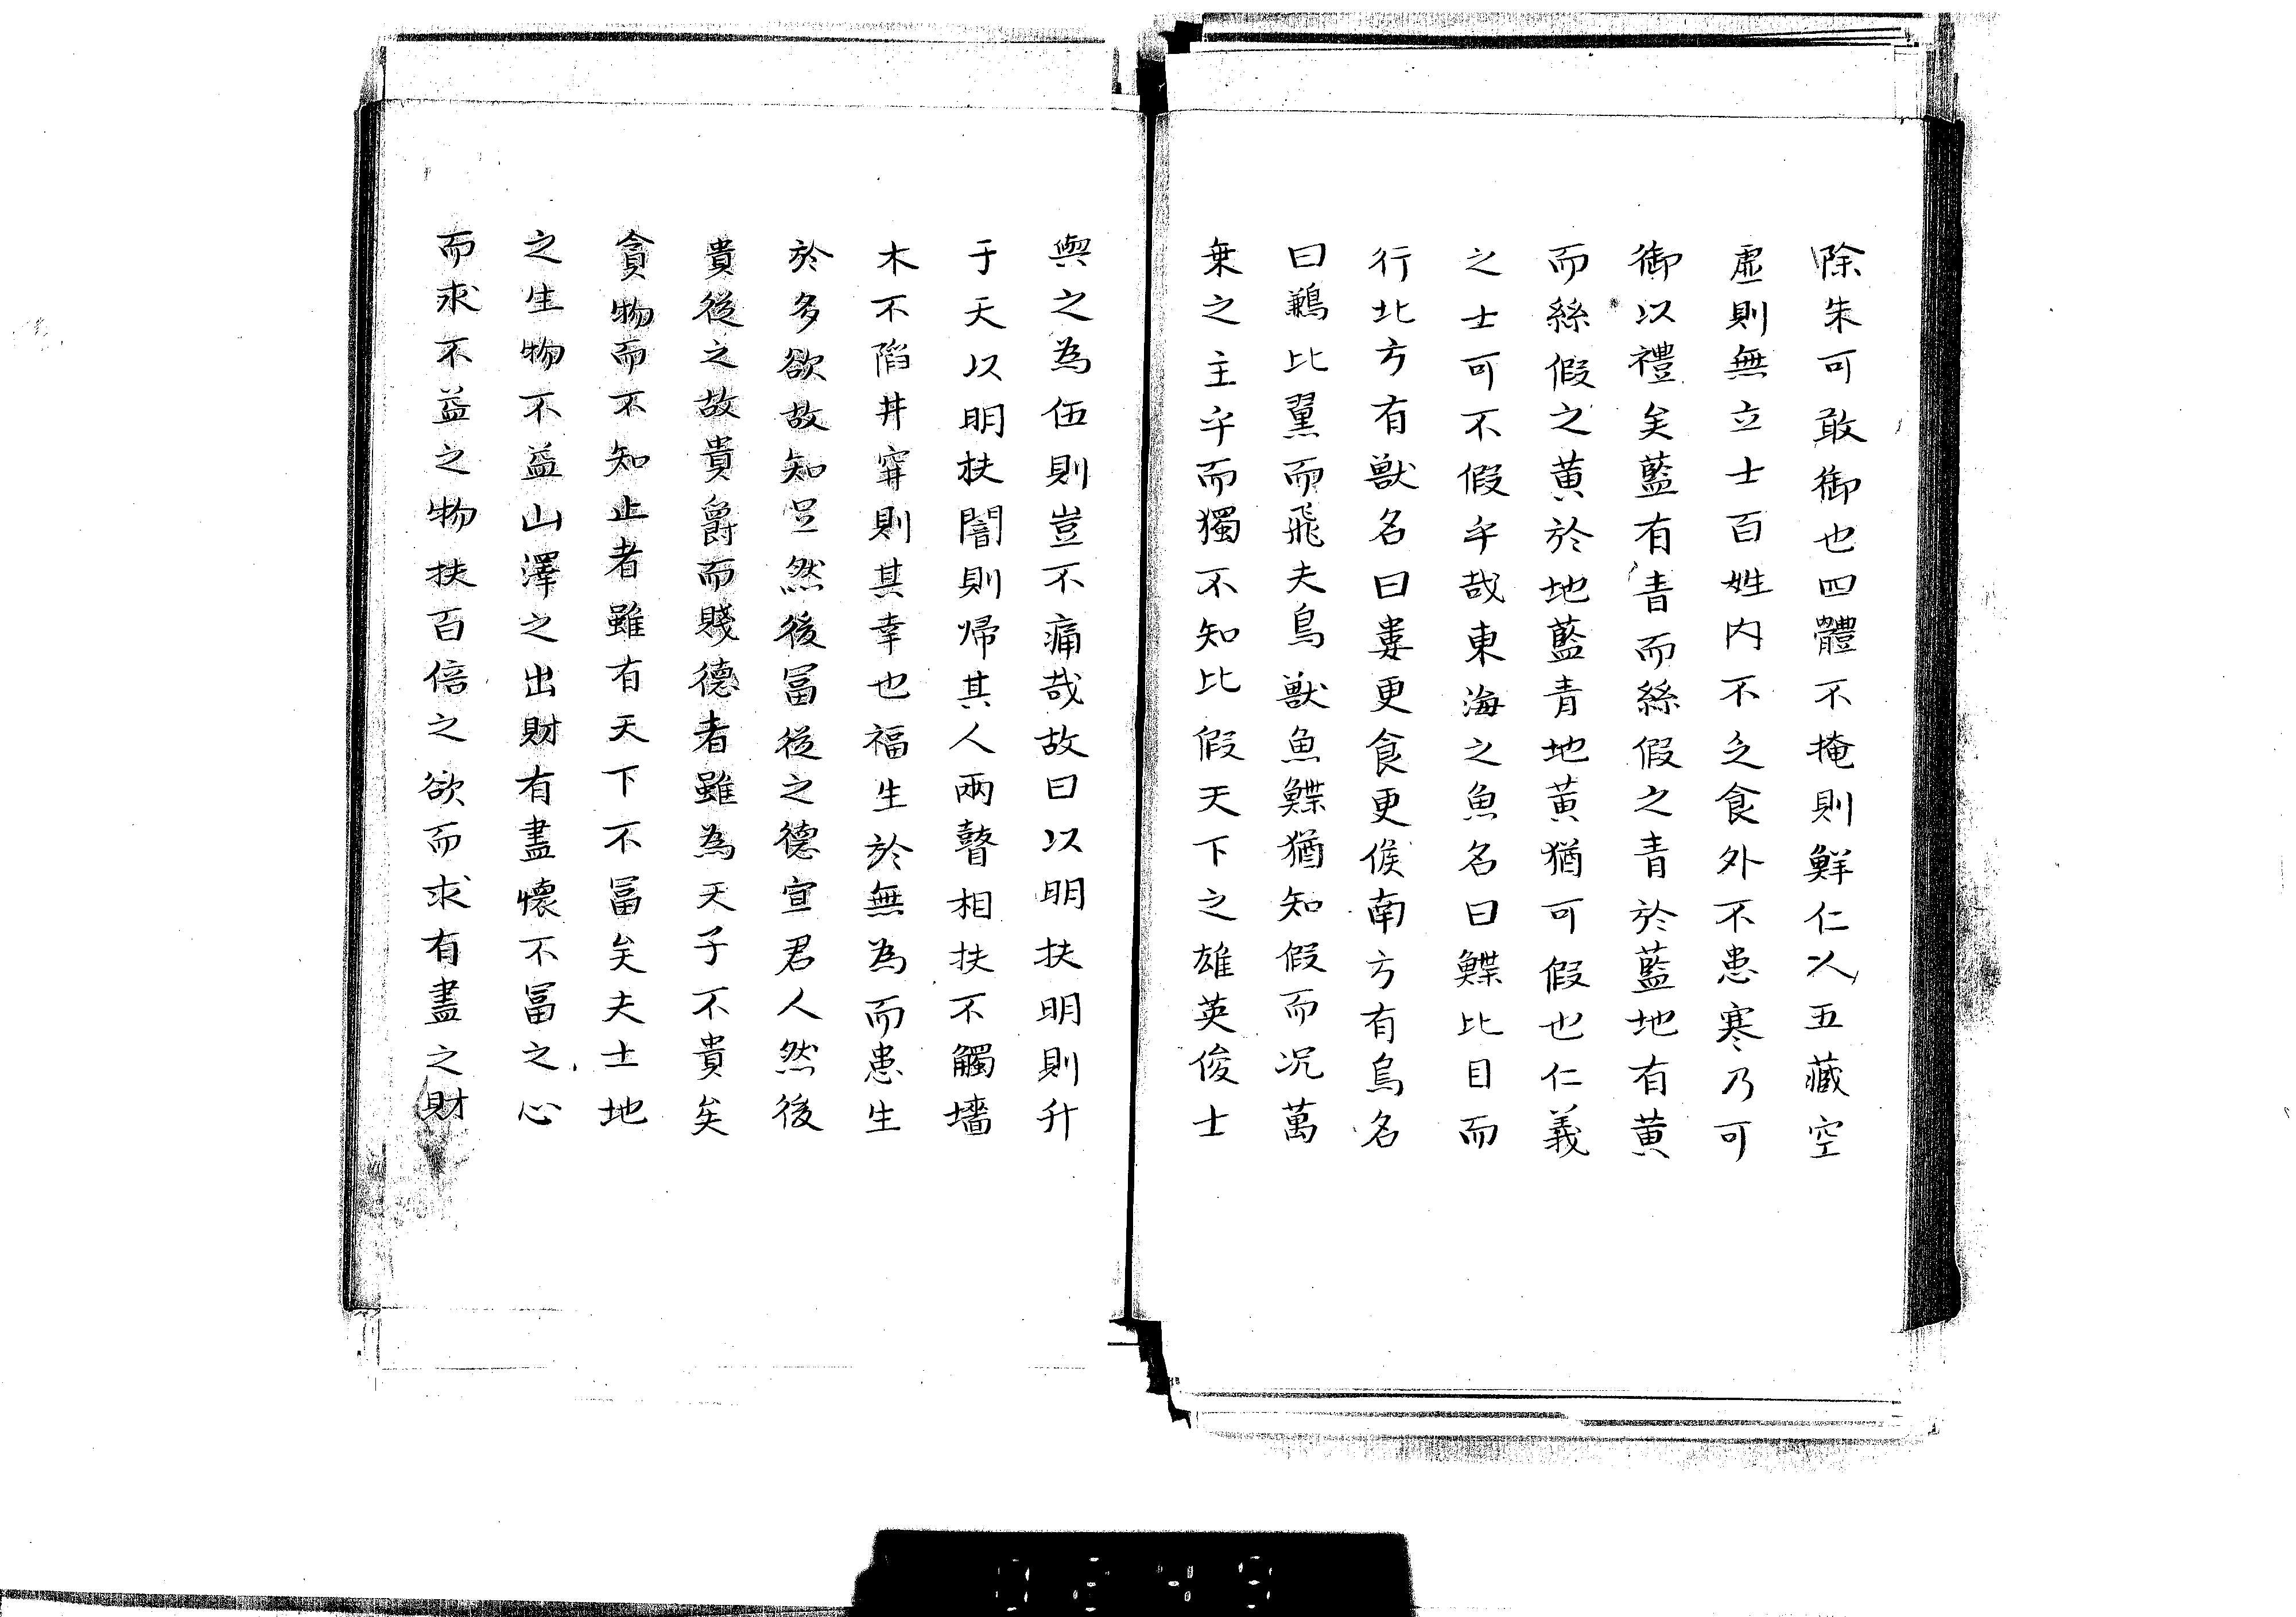 除朱可敢御也四體不掩則鮮仁人五藏空
虛則無立士百姓内不乏食外不患寒乃可
御以禮矣藍有青而絲假之青於藍地有黄
而絲假之黄於地藍青地黄猶可假也仁義
之士可不假乎哉東海之魚名曰鰈比目而
行北方有獸名曰婁更食更候南方有鳥名
曰鶼比翼而飛夫鳥獸魚鰈猶知假而况萬
乗之主乎而獨不知比假天下之雄英俊士
與之為伍則豈不痛哉故曰以明扶明則升
于天以明扶闇則帰其人兩瞽相扶不觸墻
木不陷井穽則其幸也福生於無為而患生
於多欲故知足然後冨從之德宣君人然後
貴從之故貴爵而賤德者雖為天子不貴矣
貪物而不知止者雖有天下不冨矣夫土地
之生物不益山澤之出財有盡懷不冨之心
而求不益之物扶百倍之欲而求有盡之財